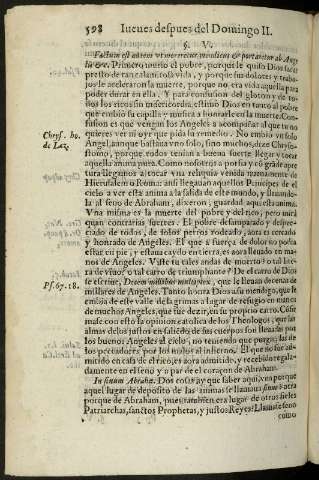 598 Iueues despues del Domingo II.
6. V.
Factum est autem vt moreretur mendicus & portaretur ab Angelis &c.
Primero murio el pobre, porque le quiso Dios
presto de tan calamitosa vida, y porque sus dolores y trabajos
le aceleraron la muerte, porque no era vida aquella para
poder durar en ella. Y para confusion del gloton y de todos
los ricos sin misericordia, estimò Dios en tanto al pobre
que embio su capilla y musica a honrarle en la muerte. Confusion
es que vengan los Angeles a acompañar al que tu no
quieres ver ni oyr que pida su remedio. No embio vn solo
Chrys. ho. de Laz.
Angel, aunque bastaua vno solo, sino muchos, dize Chrysostomo,
porque todos tenian a buena suerte llegar y tocar
aquella anima
turallegamos a tocar vna reliquia venida nueuamente de
Hierusalem o Roma: ansi llegauan aquellos Principes de el
cielo a ver esta anima a la salida de este mundo, y lleuandola
al seno de Abraham, dixeron, guardad aqui esta anima.
Vna misma es la muerte del pobre y del rico, pero mirà
quan contrarias suertes. El pobre desamparado y despreciado
de todos, de solos perros rodeado, aora es cercado
y honrado de Angeles. El que a fuerça de dolor no podia
estar en pie, y estaua caydo en tierra, es aora lleuado en manos
de Angeles. Viste tu tales andas de muerto? o tal litera
de viuo? o tal carro de triumphante? De el carro de Dios
Ps. 67. 18.
se escriue, Decem millibus multiplex, que le lleuan decenas de
millares de Angeles. Tanto honra Dios a su mendigo, que le
embia de este valle de lagrimas a lugar de refugio en manos
de muchos Angeles, que fue dezir, en su propio carro.
con esto la opinion catolica de los Theologos, que las
almas delos justos en saliendo de sus cuerpos son lleuadas por
los buenos Angeles al cielo, no teniendo que purgar; las de
los peccadores por los malos al infierno. El que no fue admitido
en casa de el rico, es aora admitido, y recebido regaladamente
en el seno y a par de el coraçon de Abraham.
In sinum Abrahæ. Dos cosas ay que saber aqui, vna porque
aquel lugar de deposito de las animas se llamaua sinus: otra
porque de Abraham, pues tambien era lugar de otros fieles
Patriarchas, sanctos Prophetas, y justos Reyes? Llamase seno
como